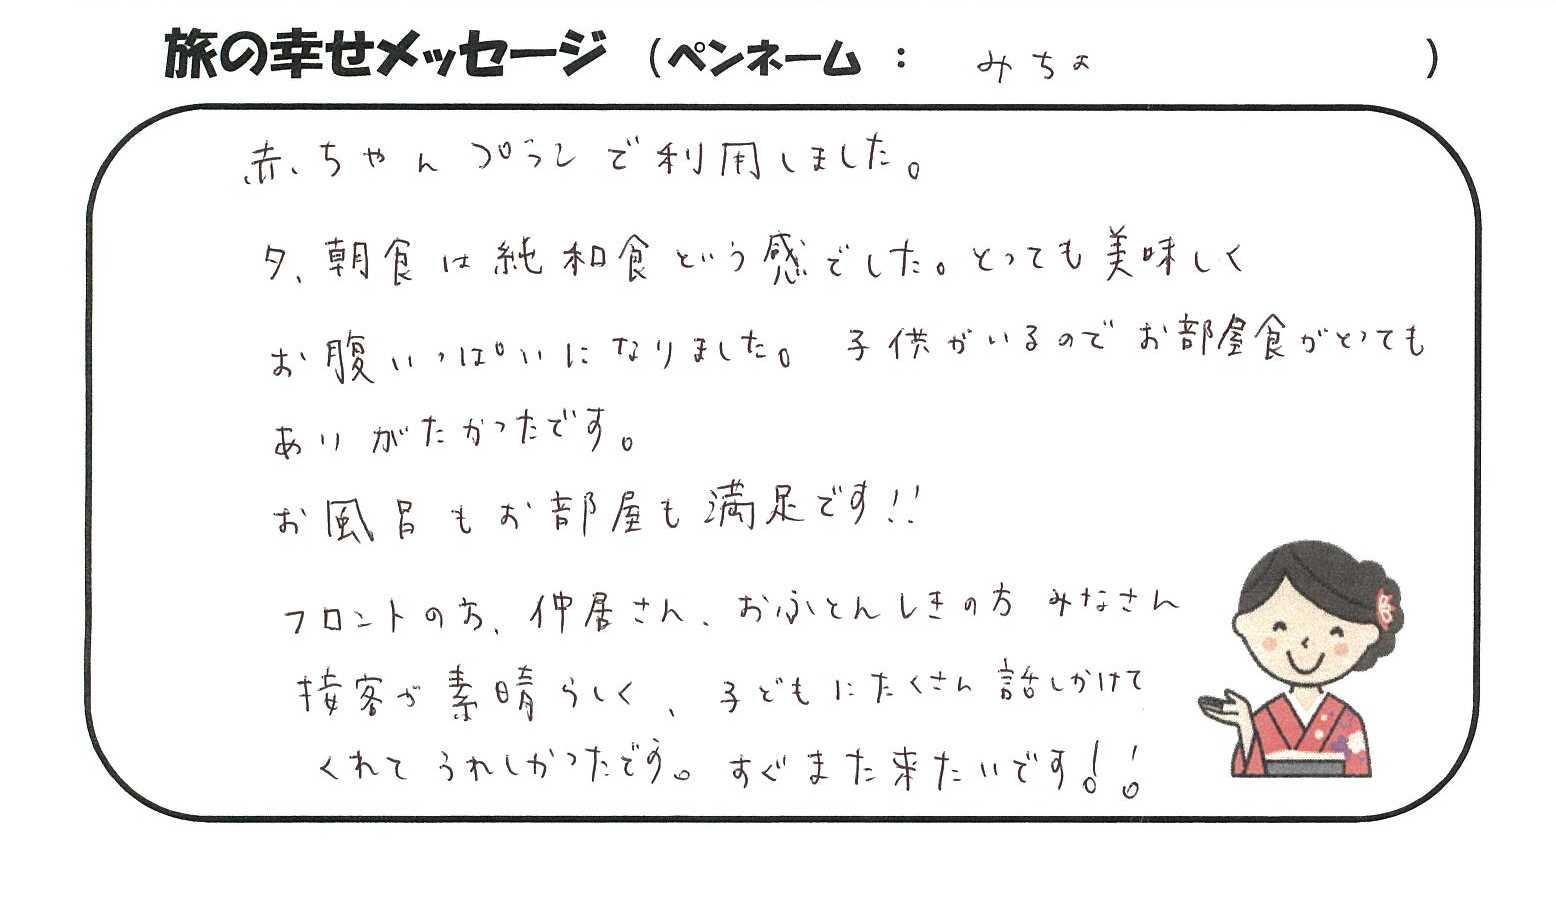 旅の幸せメッセージ （ペンネーム ： みちょ ）
赤ちゃんプランで利用しました。
夕、朝食は純和食という感でした。とっても美味しく
お腹いっぱいになりました。 子供がいるのでお部屋食がとっても
ありがたかったです。
お風呂もお部屋も満足です!!
フロントの方、仲居さん、おふとんしきの方 みなさん
接客が素晴らしく、子どもにたくさん話しかけて
くれてうれしかったです。すぐまた来たいです!!